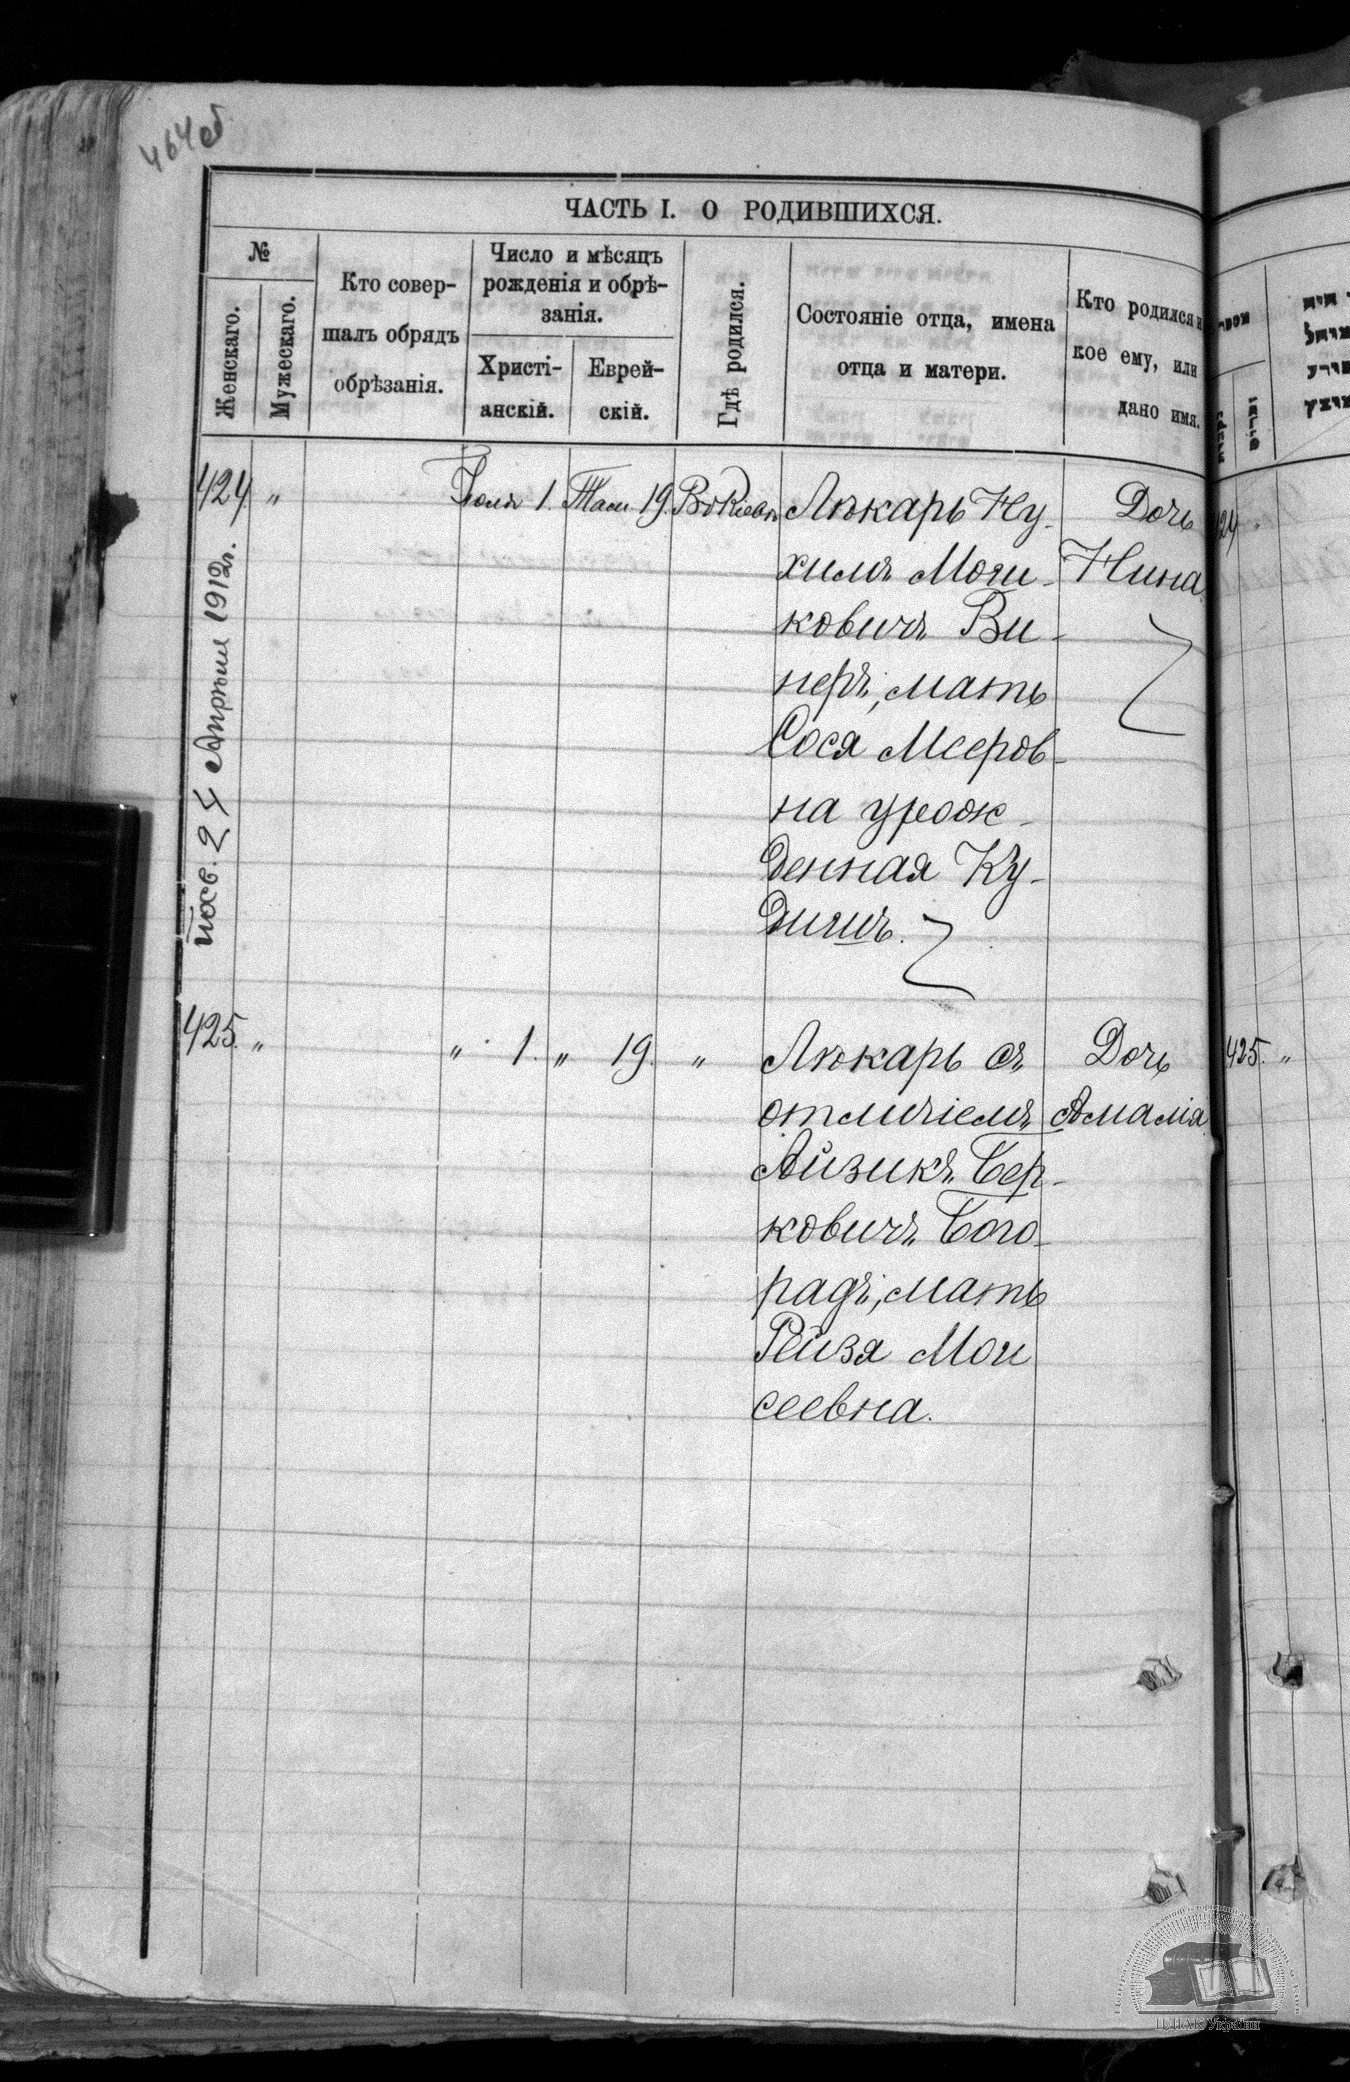 464 об
ЧАСТЬ I. О РОДИВШИХСЯ.
№
Женскаго.
Мужескаго.
Кто совер-
шалъ обрядъ
обрѣзанія.
Число и мѣсяцъ
рожденія и обрѣ-
занія.
Христі-
анскій.
Еврей-
скій.
Гдѣ родился.
Состояніе отца, имена
отца и матери.
Кто родился и
кое ему, или
дано имя.
424. " Іюля 1. Там. 19. Въ Кіевѣ Лѣкарь Ну- Дочь
химъ Моши- Нина.
ковичъ Ви-
неръ, мать
Сося Мееров-
на урож-
денная Ку-
дишъ.
425. " " 1. " 19. " Лѣкарь съ Дочь
отличіемъ Амалія.
Айзикъ Бер-
ковичъ Бого-
радъ, мать
Рейза Мои
сеевна.
24 Апрѣля 1912г.
424 "
425. "
ЦДІАК України